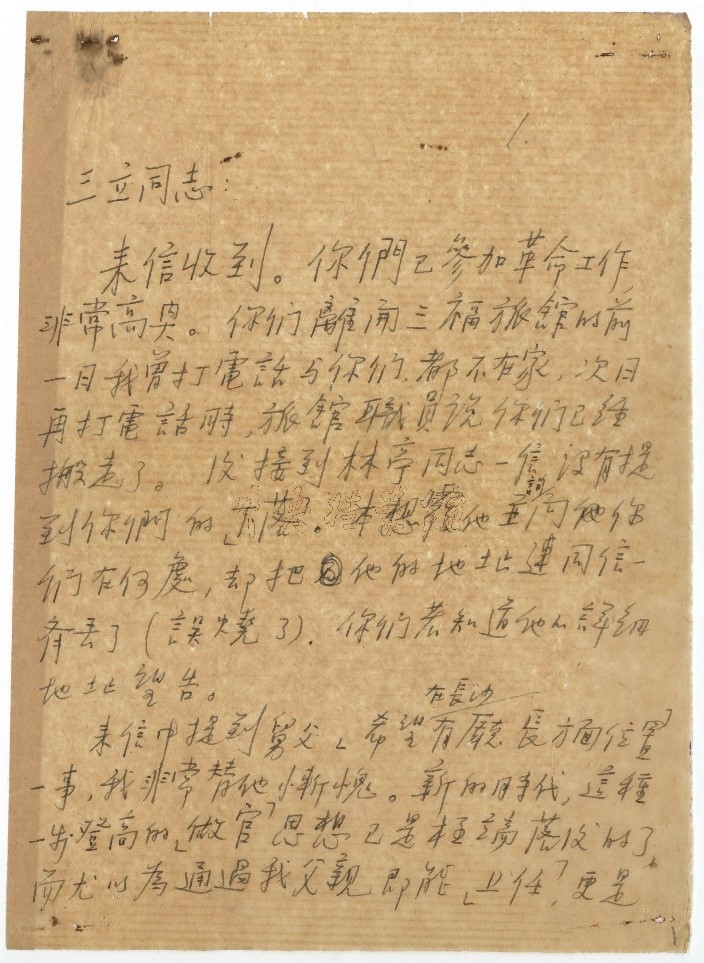 1.
三立同志：
来信收到。你們已參加革命工作，
非常高兴。你们離開三福旅館的前
一日我曾打電話与你们，都不在家，次日
再打電話時，旅館職員说你们已经
搬走了。後接到林亭同志一信没有提
到你們的「下落」。本想複他並詢问他你
們在何處，却把他的地址連同信一
齐丢了（誤燒了）。你们若知道他的詳細
地址望告。
来信中提到舅父「希望在長沙有廳長方面位置」
一事，我非常替他慚愧。新的時代，這種
一步登高的「做官」思想已是極端落後的了，
而尤以為通過我父親即能「上任」，更是